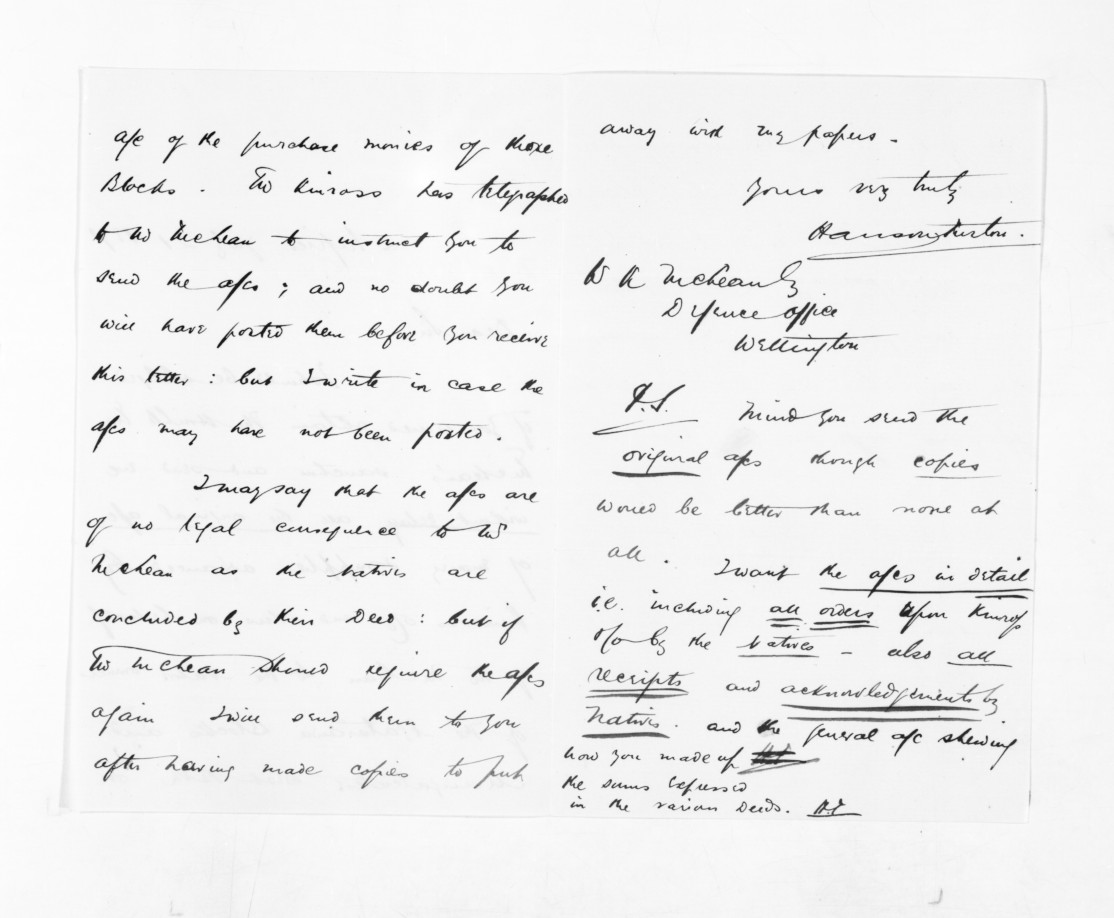 a/c of the purchase monies of those
Blocks. Mr Kinross has telegraphed
to Mr McLean to instruct you to
send the a/cs; and no doubt you
will have posted them before you receive
this letter: but I write in case the
a/cs may have not been posted.
I may say that the a/cs are
of no legal consequence to Mr
McLean as the Natives are
concluded by their Deed: but if
Mr McLean should require the a/cs
again I will send them to you
after having made copies to put
away with my papers.
Yours very truly
Hanson Turton.
W K McLean Esq
Defence Office
Wellington
P.S. Mind you send the
original a/cs though copies
would be better than none at
all. I want the a/cs in detail
i.e. including all orders upon Kinross
&/o by the Natives – also all
receipts and acknowledgements by
Natives. and the general a/c shewing
how you made up
the sums expressed
in the various Deeds. H.T